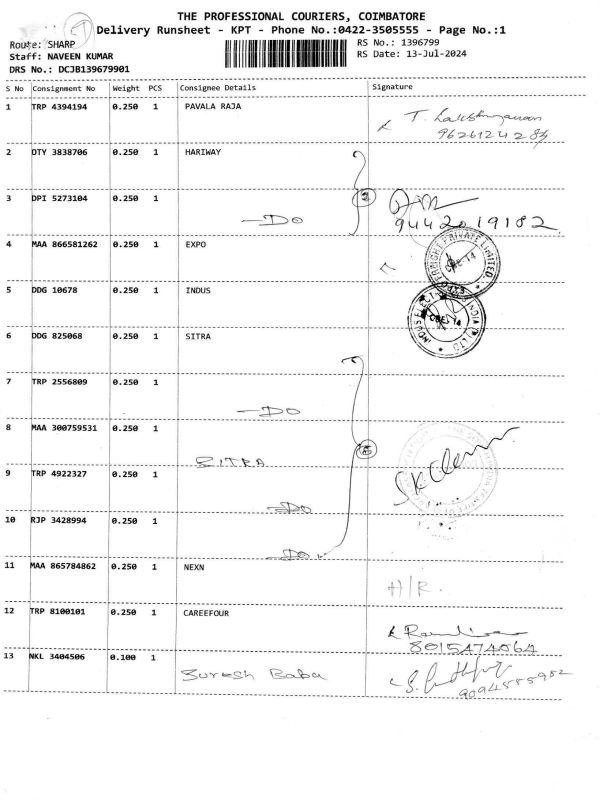 THE PROFESSIONAL COURIERS, COIMBATORE
Delivery Runsheet - KPT - Phone No.:0422-3505555 - Page No.:1
Route: SHARP
Staff: NAVEEN KUMAR
DRS No.: DCJB139679901
RS No.: 1396799
RS Date: 13-Jul-2024
S No Consignment No Weight PCS Consignee Details Signature
1 TRP 4394194 0.250 1 PAVALA RAJA
9626124283
2 DTY 3838706 0.250 1 HARIWAY
3 DPI 5273104 0.250 1 —DO
9442019182
4 MAA 866581262 0.250 1 EXPO
FREIGHT PRIVATE LIMITED
5 DDG 10678 0.250 1 INDUS
6 DDG 825068 0.250 1 SITRA
7 TRP 2556809 0.250 1 —DO
8 MAA 300759531 0.250 1 SITRA
9 TRP 4922327 0.250 1 —DO
10 RJP 3428994 0.250 1 —DO
11 MAA 865784862 0.250 1 NEXN H/R.
12 TRP 8100101 0.250 1 CAREEFOUR
8015474064
13 NKL 3404506 0.100 1 Suresh Babu
9094585982